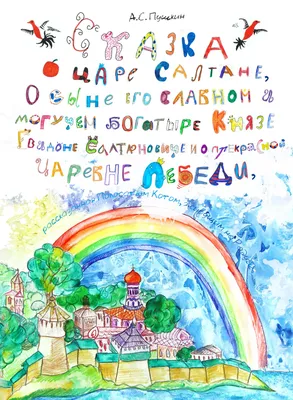 А.С. Пушкин
Сказка
о царе Салтане,
о сыне его славном и
могучем богатыре князе
Гвидоне Салтановиче и о прекрасной
царевне Лебеди,
рассказанная Котом,